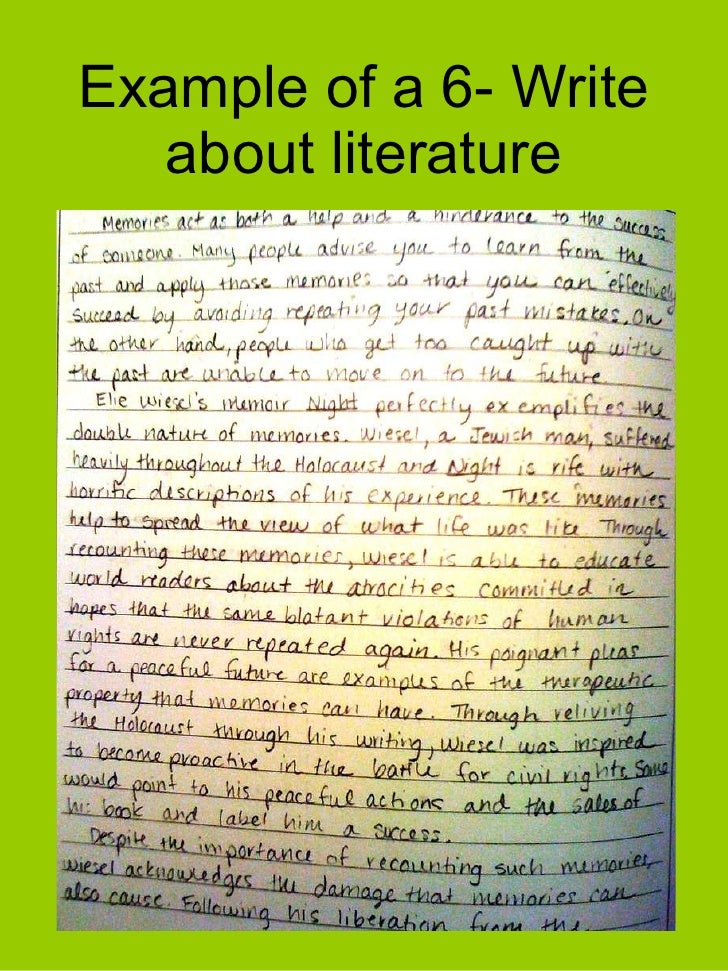 Example of a 6- Write
about literature
Memories act as both a help and a hinderance to the success
of someone. Many people advise you to learn from the
past and apply those memories so that you can effectively
succeed by avoiding repeating your past mistakes. On
the other hand, people who get too caught up with
the past are unable to move on to the future.
Elie Wiesel's memoir Night perfectly exemplifies the
double nature of memories. Wiesel, a Jewish man, suffered
heavily throughout the Holocaust and Night is rife with
horrific descriptions of his experience. These memories
help to spread the view of what life was like. Through
recounting these memories, Wiesel is able to educate
world readers about the atrocities committed in
hopes that the same blatant violations of human
rights are never repeated again. His poignant pleas
for a peaceful future are examples of the therapeutic
property that memories can have. Through reliving
the Holocaust through his writing, Wiesel was inspired
to become proactive in the battle for civil rights. Some
would point to his peaceful actions and the sales of
his book and label him a success.
Despite the importance of recounting such memories,
Wiesel acknowledges the damage that memories can
also cause. Following his liberation from the